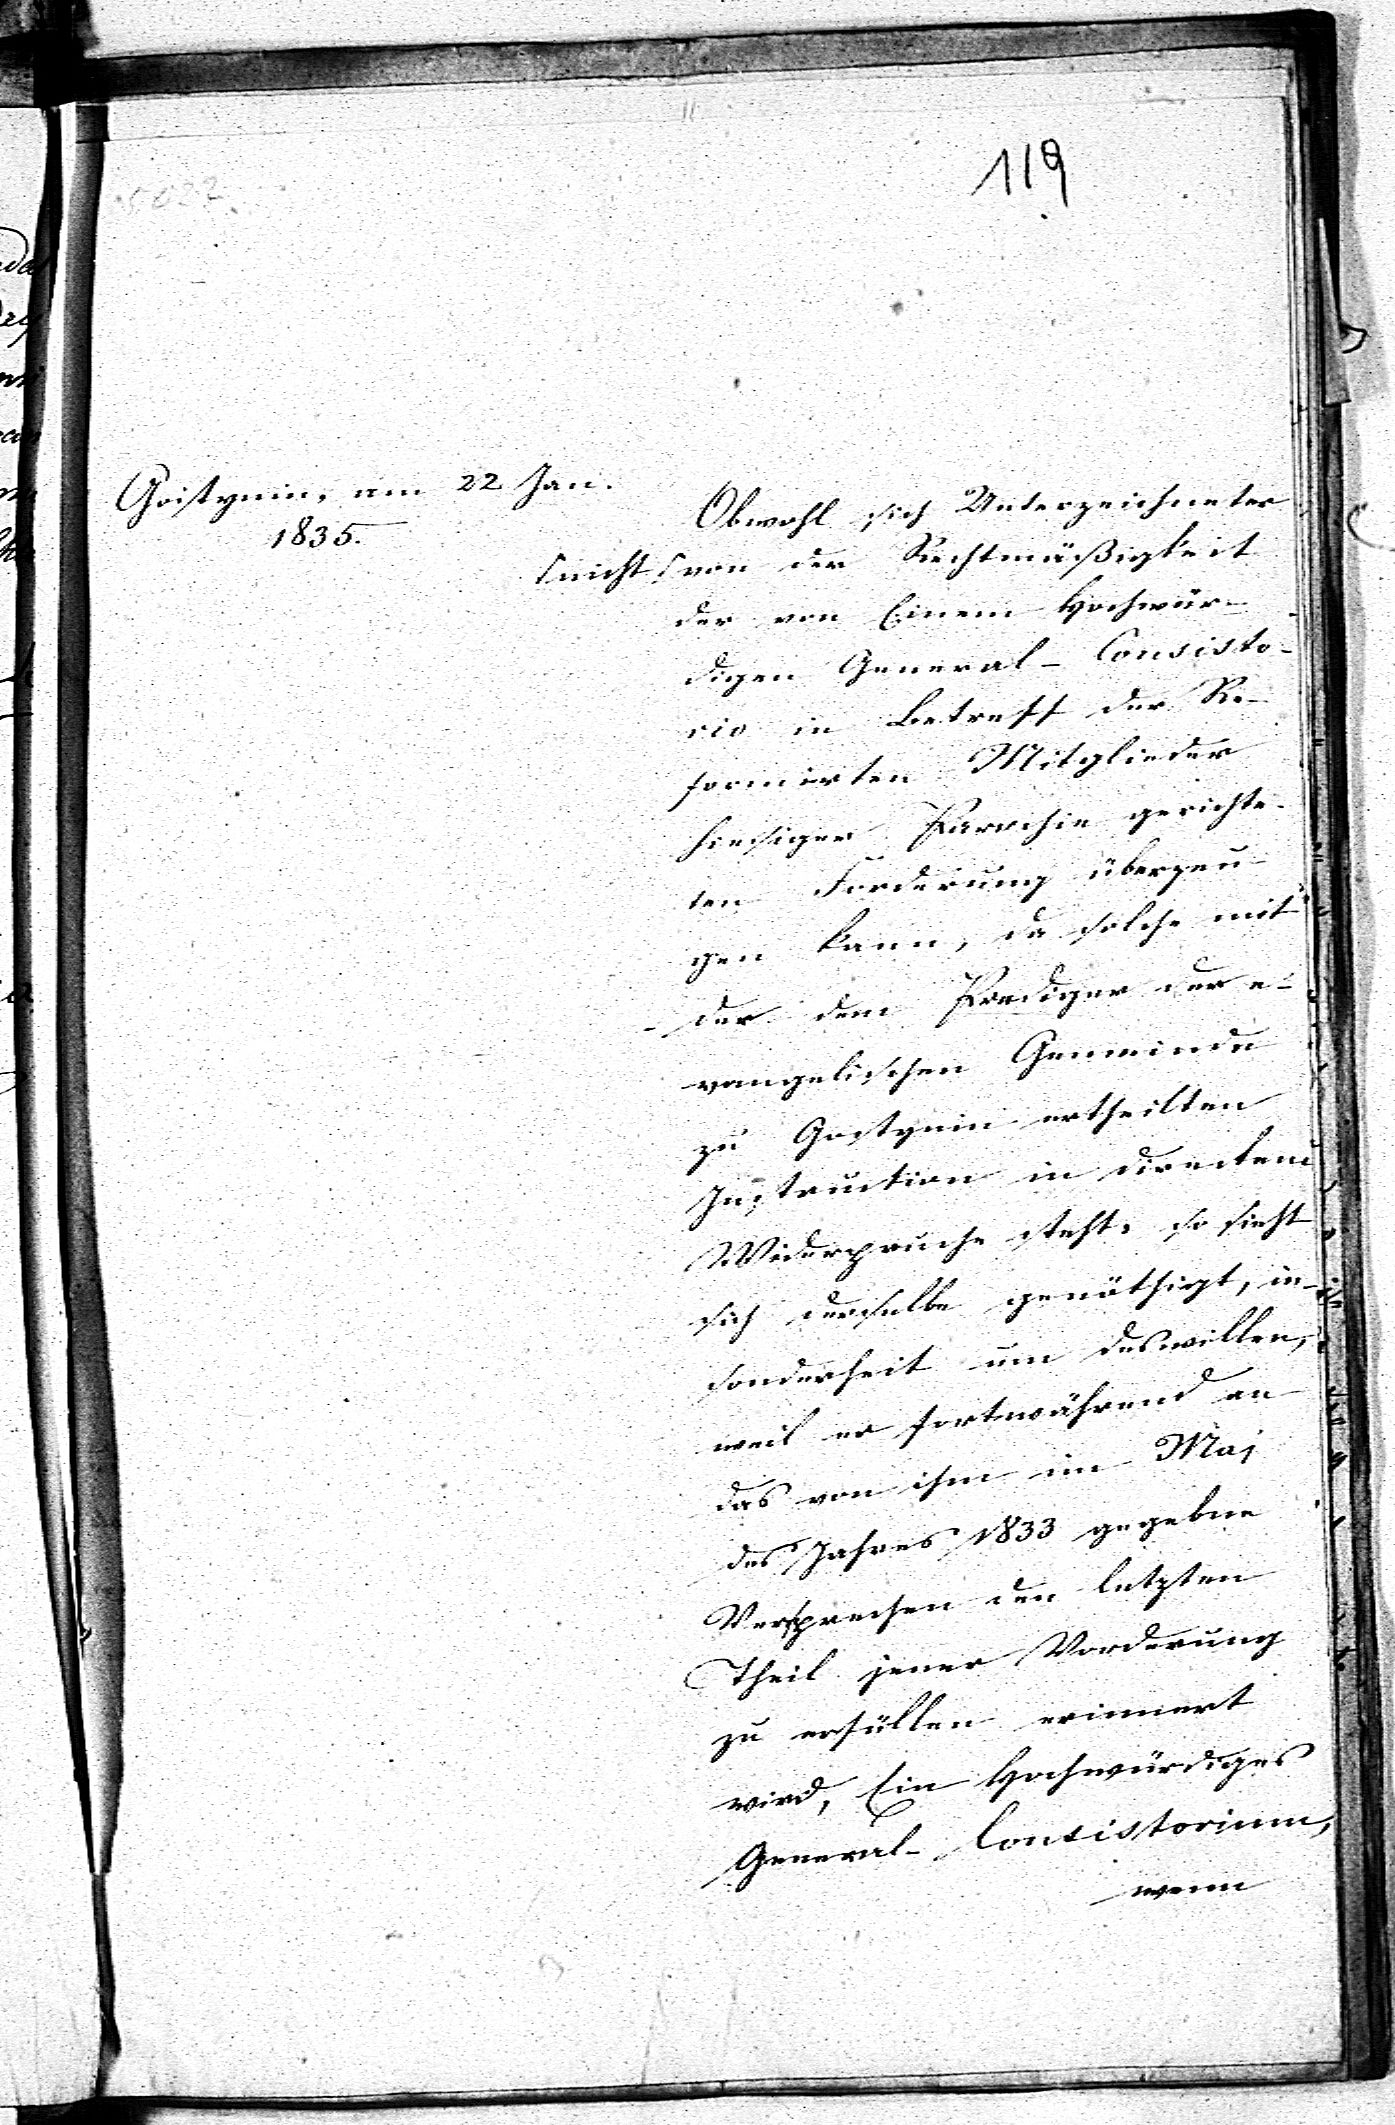 119
Gostynin, am 22 Jan.
1835.
Obwohl sich Unterzeichneter
nicht von der Rechtmäßigkeit
der von Einem Hochwür-
digen General-Consisto-
rio in Betreff der Re-
formirten Mitglieder
hiesiger Parochie gerichte-
ten Forderung überzeu-
gen kann, da solche mit
der dem Prediger der e-
vangelischen Gemeinde
zu Gostynin ertheilten
Instruction in directem
Widerspruche steht, so sieht
sich derselbe genöthigt, in-
sonderheit um deswillen,
weil er fortwährend an
das von ihm im Maj
des Jahres 1833 gegebne
Versprechen den letzten
Theil jener Vorderung
zu erfüllen erinnert
wird, Ein Hochwürdiges
General-Consistorium,
wenn